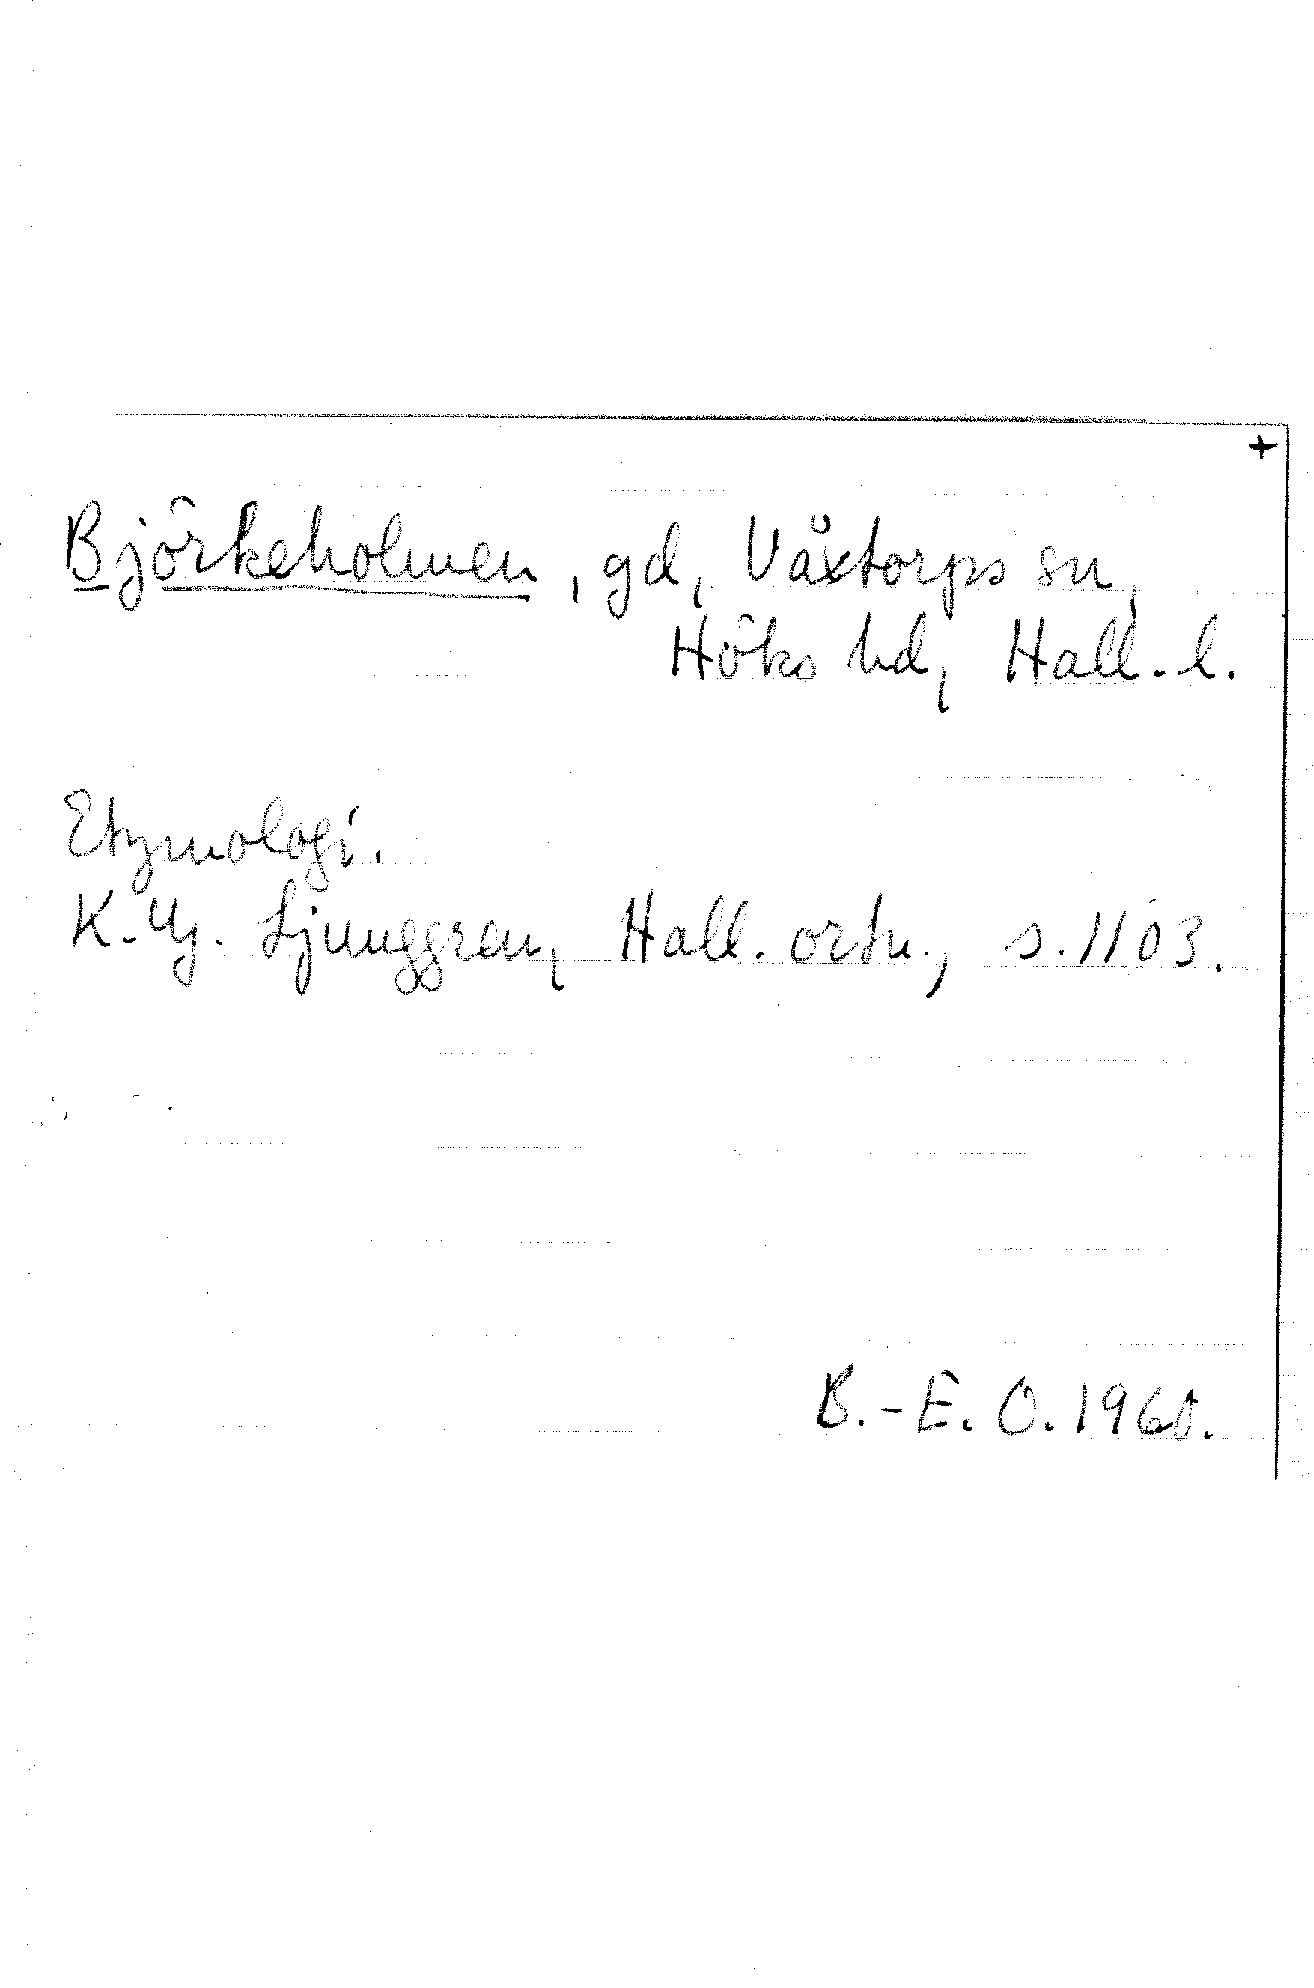 +
Björkeholmen, gd, Våxtorps sn,
Höks hd, Hall. l.
Etymologi.
K.-Hj. Ljunggren, Hall. ortn., s. 1103.
B.-E. O. 1960.